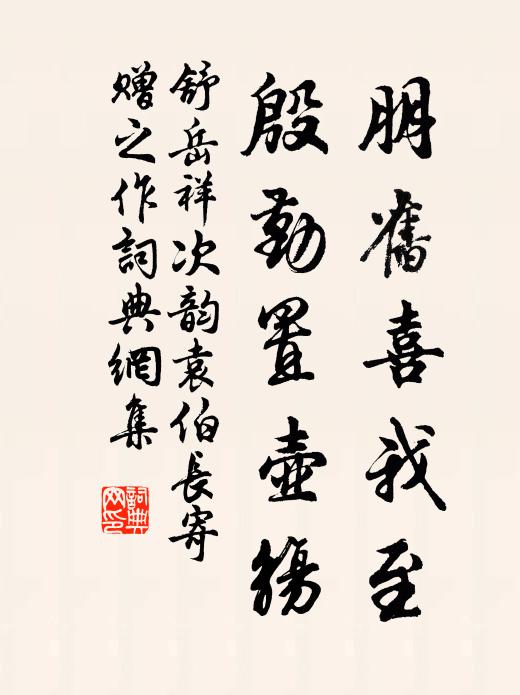 朋舊喜我至
殷勤置壺觴
舒岳祥次韵袁伯長寄
贈之作詞典網集
詞典
网印